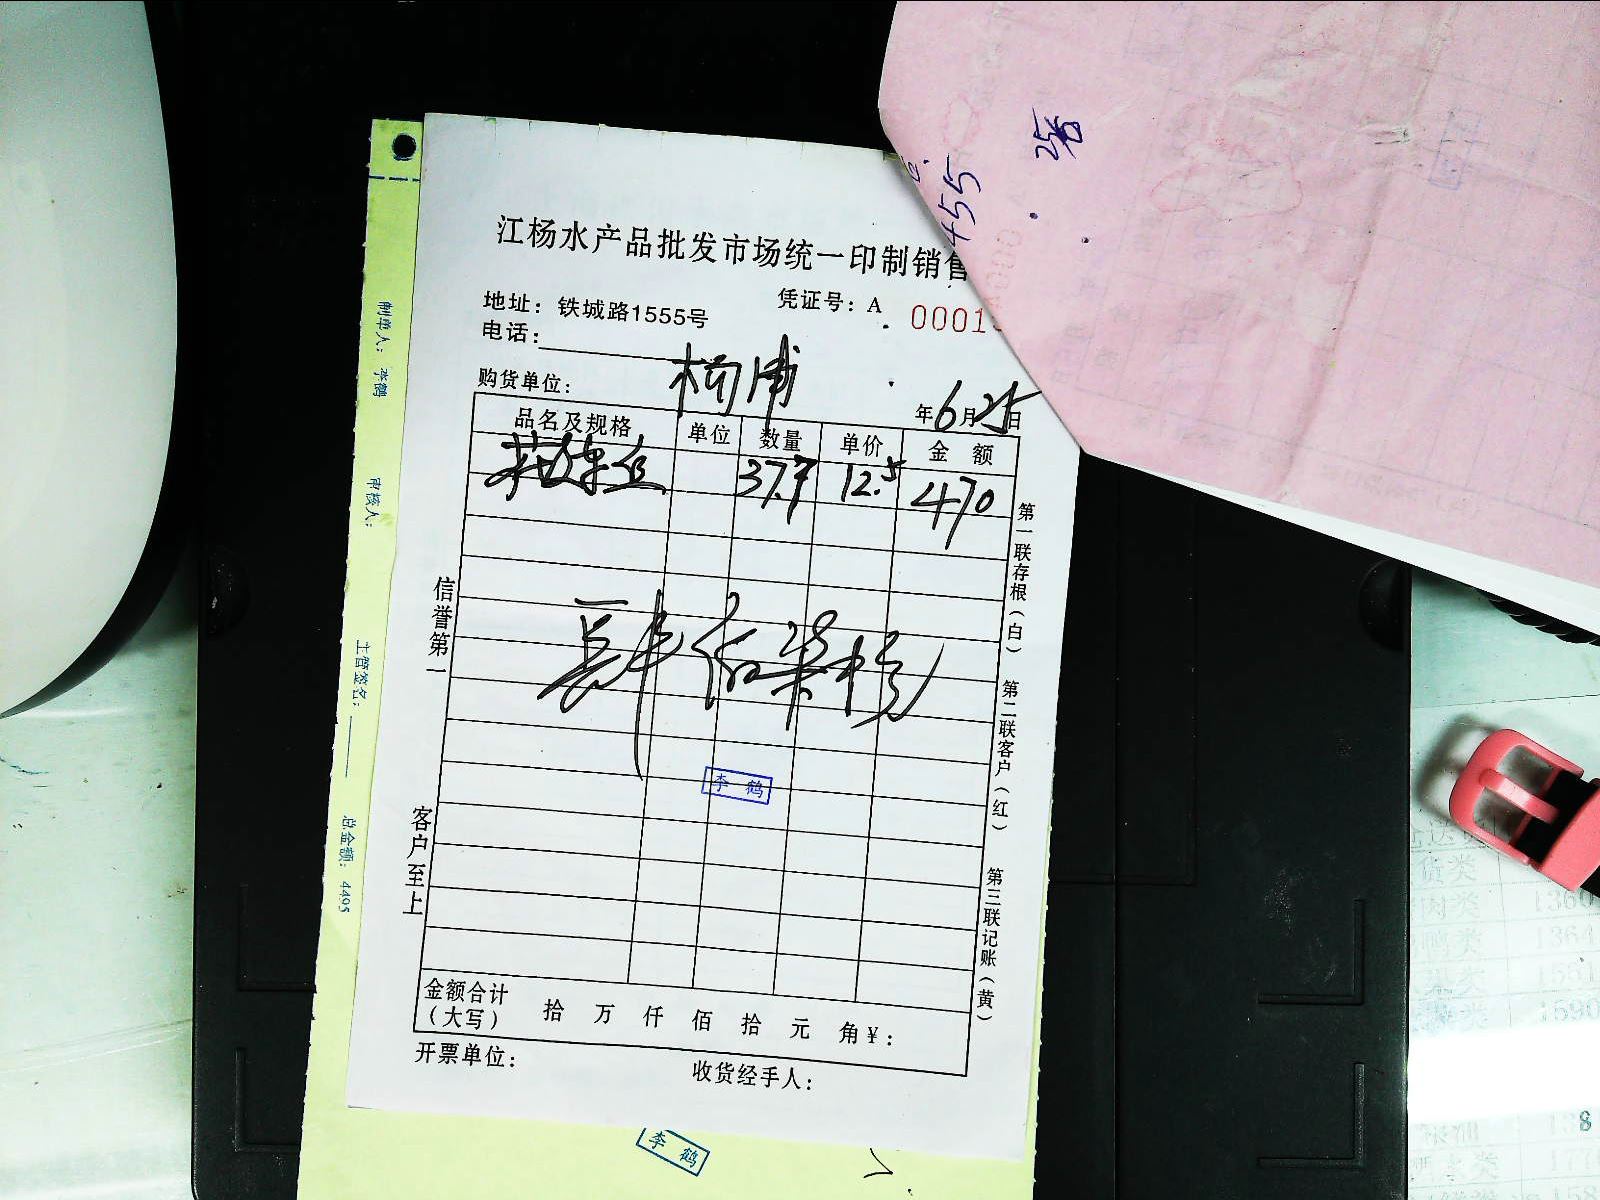 江杨水产品批发市场统一印制销售
地址：铁城路1555号
凭证号：A 0001
电话：
购货单位：杨浦
年6月25日
品名及规格 单位 数量 单价 金额
花连鱼 37.7 12.5 470
肆佰柒拾
李鹤
信誉第一
客户至上
第一联存根（白）
第二联客户（红）
第三联记账（黄）
金额合计
（大写） 拾 万 仟 佰 拾 元 角¥：
开票单位：
收货经手人：
制单人：李鹤
审核人：
主管签名：
总金额：4495
李鹤
455
货类
肉类
1364
1590